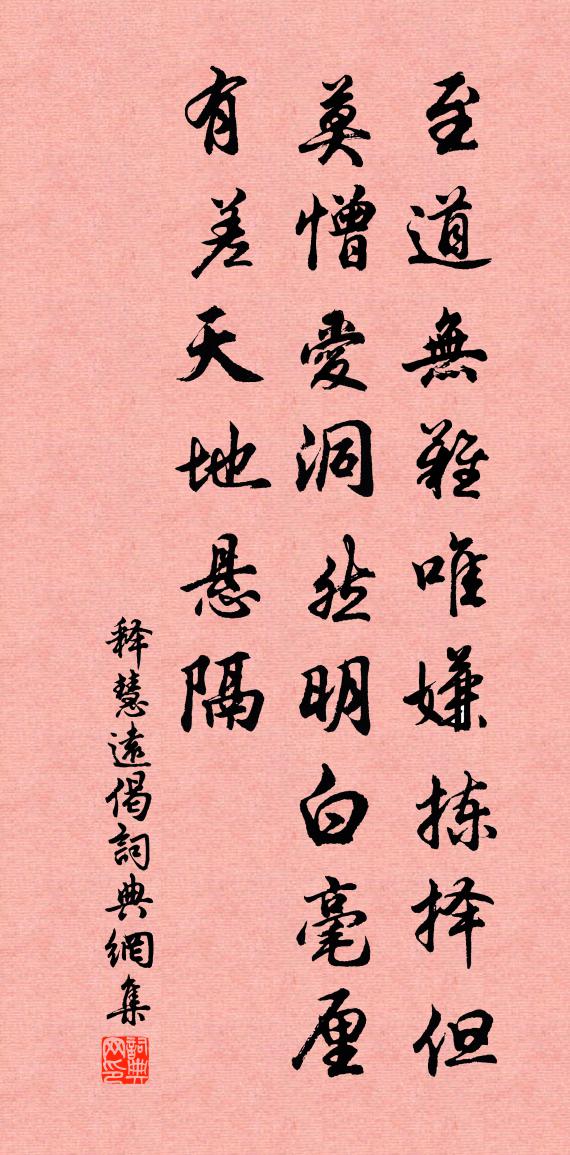 至道無難唯嫌拣择但
莫憎愛洞然明白毫厘
有差天地悬隔
释慧遠偈詞典網集
詞典网印